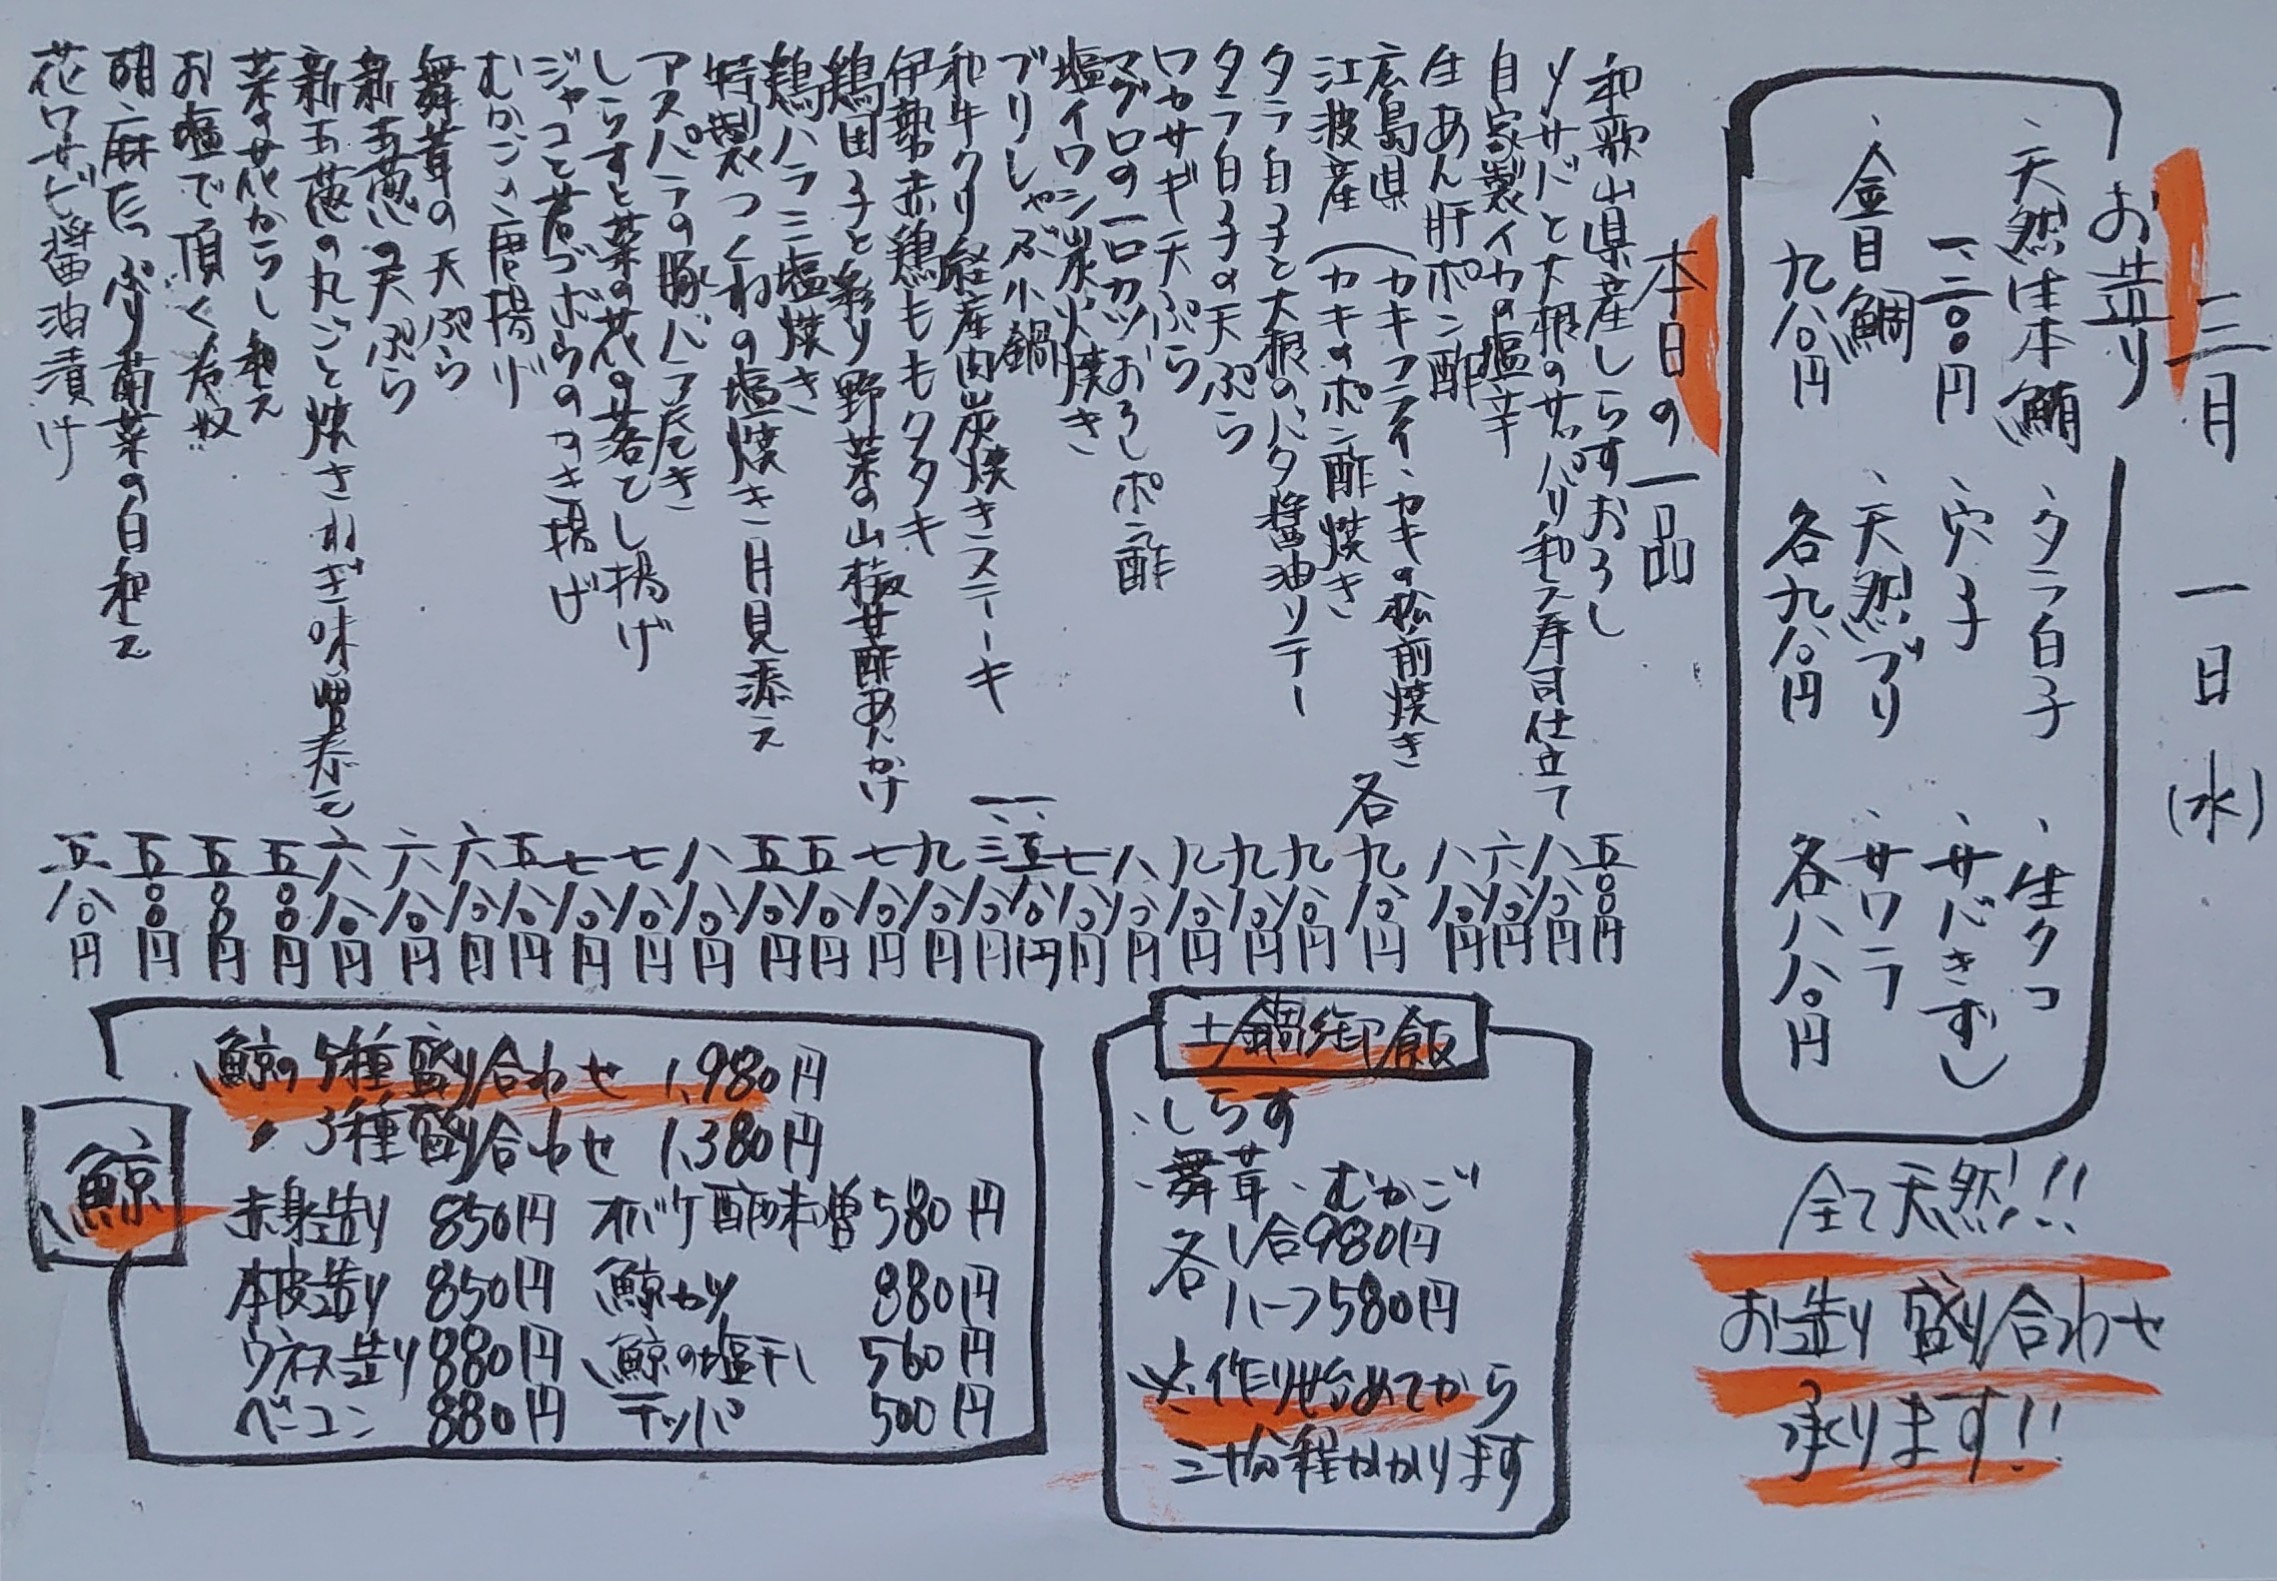 三月 一日(水)
お造り
、天然生本鮪
一、二〇〇円
、金目鯛
九八〇円
、タラ白子
、穴子
、天然ブリ
各九八〇円
、生タコ
、サバきずし
、サワラ
各八八〇円
全て天然!!
お造り盛り合わせ
承ります!!
本日の一品
和歌山県産しらすおろし 五〇〇円
〆サバと大根のサッパリ和え寿司仕立て 八八〇円
自家製イカの塩辛 六八〇円
生あん肝ポン酢 八八〇円
広島県 (カキフライ、カキの松前焼き
江波産 (カキのポン酢焼き 各九八〇円
タラ白子と大根のバタ醤油ソテー 九八〇円
タラ白子の天ぷら 九八〇円
ワカサギ天ぷら 九八〇円
マグロの一口カツおろしポン酢 八八〇円
塩イワシ炭火焼き 七八〇円
ブリしゃぶ小鍋 一、五八〇円
和牛クリ経産肉炭焼きステーキ 一、三八〇円
伊勢赤鶏ももタタキ 九八〇円
鶏団子と彩り野菜の山椒甘酢あんかけ 七八〇円
鶏ハラミ塩焼き 五八〇円
特製つくねの塩焼き 月見添え 五八〇円
アスパラの豚バラ巻き 八八〇円
しらすと菜の花の落とし揚げ 七八〇円
ジャコと若ごぼうのかき揚げ 七八〇円
むかごの唐揚げ 五八〇円
舞茸の天ぷら 六八〇円
新玉葱の天ぷら 六八〇円
新玉葱の丸ごと焼きねぎ味噌添え 六八〇円
菜の花からし和え 五〇〇円
お塩で頂く冷奴 五〇〇円
胡麻たっぷり菊菜の白和え 五〇〇円
花ワサビ醤油漬け 五八〇円
土鍋御飯
、しらす
、舞茸、むかご
各1合980円
ハーフ580円
※作り始めてから
三十分程かかります
鯨
鯨の5種盛り合わせ 1,980円
〃 3種盛り合わせ 1,380円
赤身造り 850円 オバケ酢味噌 580円
本皮造り 850円 鯨カツ 880円
ウネス造り 880円 鯨の塩干し 560円
ベーコン 880円 テッパ 500円